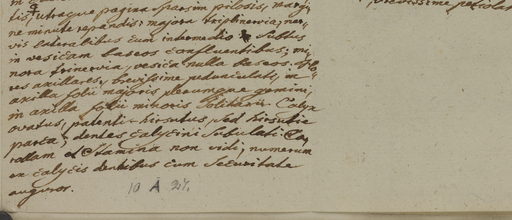 utraque pagina sparsim pilosis, margi-
ne minute repandis: majora triplinervia, ner-
vis lateralibus cum intermedio subtus
in vesicam baseos confluentibus; mi-
nora trinervia, vesica nulla baseos. Flo-
res axillares, brevissime pedunculati, in
axilla folii majoris plerumque gemini,
in axilla folii minoris solitarii. Calyx
ovatus, patenti-hirsutus, sed hirsutie
parca; dentes calycini subulati. Co-
rollam et Stamina non vidi, numerum
ex calycis dentibus cum securitate
auguror.
10 A 27.
brevissime petiolat